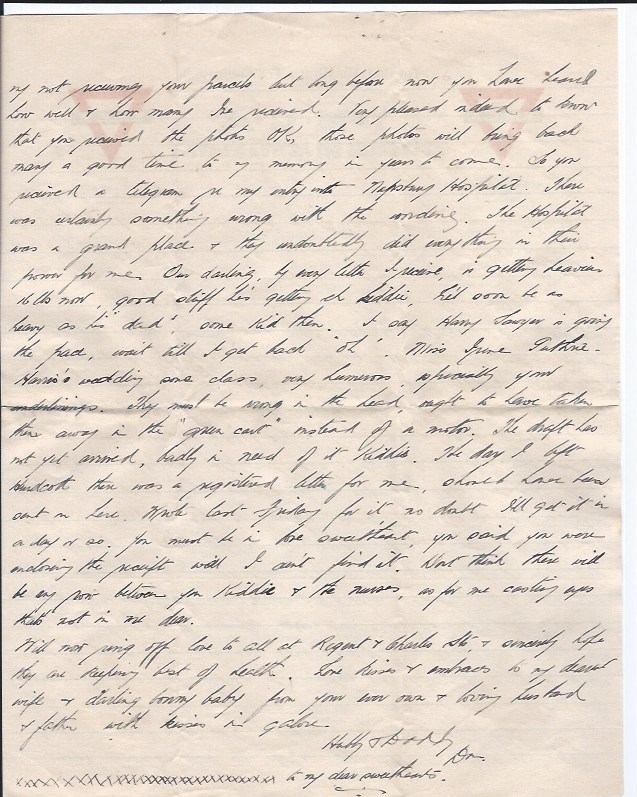 my not receiving your parcels but long before now you have heard
how well & how many I've received. Very pleased indeed to know
that you received the photos OK, those photos will bring back
many a good time to my memory in years to come. So you
received a telegram re my entry into Napsbury Hospital. There
was certainly something wrong with the wording. The Hospital
was a grand place & they undoubtedly did everything in their
power for me. Our darling, by every letter I receive, is getting heavier
16 lbs now, good stuff he's getting eh kiddie, he'll soon be as
heavy as his 'dad', some kid then. I say Harry Sawyer is going
the pace, wait till I get back 'oh'. Miss Irene
Harris's wedding some class, very humorous, especially your
underlinings. They must be wrong in the head, ought to have taken
them away in the "green cart" instead of a motor. The draft has
not yet arrived, badly in need of it Kiddie. The day I left
Hurdcott there was a registered letter for me, should have been
sent on here. Wrote last Friday for it no doubt I'll get it in
a day or so. You must be in love sweetheart, you said you were
enclosing the receipt well I can't find it. Dont think there will
be any row between you Kiddie & the nurses, as for me casting eyes
thats not in me dear.
Will now ring off love to all at Regent & Charles Sts, & sincerely hope
they are keeping best of health. Love kisses & embraces to my dearest
wife & darling bonny baby from your ever own & loving husband
& father with kisses in galore
Hubby & Daddy
xxxxxxxxxxxxxxxxxxxxxxxxx to my dear sweethearts.